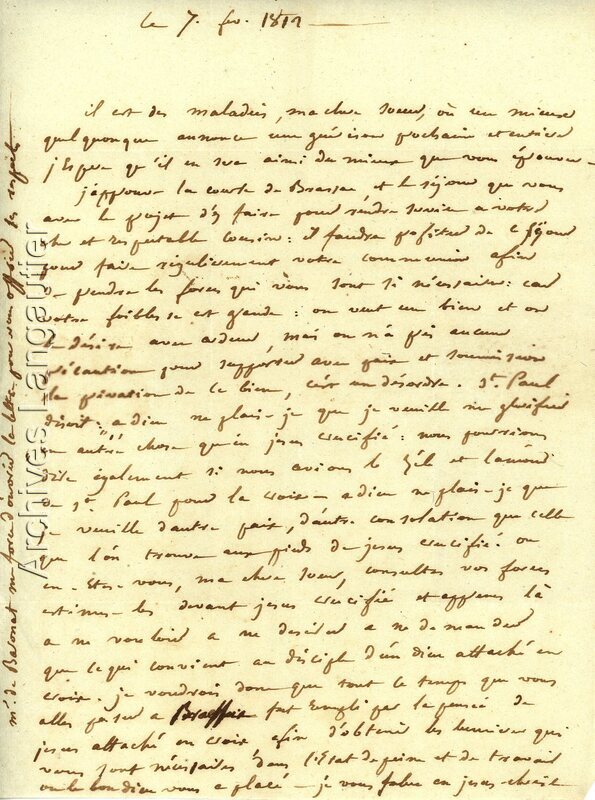 le 7. fev. 1812
il est des maladies, ma chere soeur, où un mieux
quelquonque annonce une guérison prochaine et entiere
j'espere qu'il en sera ainsi du mieux que vous éprouvez
j'approuve la course de et le séjour que vous
avez le projet d'y faire pour rendre service a votre
et respectable cousin: il faudra profiter de ce séjour
pour faire régulierement votre communion afin
de prendre les forces qui vous sont si nécessaires: car
votre foiblesse est grande: on veut un bien et on
le désire avec ardeur, mais on n'a pris aucune
précaution pour supporter avec paix et soumission
la privation de ce bien, c'est un désordre. St. Paul
disoit: a dieu ne plaise que je veuille me glorifier
en autre chose qu'en jesus crucifié: nous pourrions
dire également si nous avions le zéle et l'amour
de St. Paul pour la croix - a dieu ne plaise que
je veuille d'autre paix, d'autre consolation que celle
que l'on trouve aux pieds de jesus crucifié. ou
en êtes-vous, ma chere soeur, consultez vos forces
estimez-les devant jesus crucifié et apprenez là
a ne vouloir a ne desirer a ne demander
que ce qui convient au disciple d'un dieu attaché en
croix. je voudrois donc que tout le temps que vous
allez passer a fut rempli par la pensée de
jesus attaché en croix afin d'obtenir les lumieres qui
vous sont nécessaires dans l'état de peine et de travail
ou le bon dieu vous a placé - je vous salue en jesus-christ
mr. de Baronat me force d'ouvrir la lettre pour vous offrir ses respects
Archives Langautier